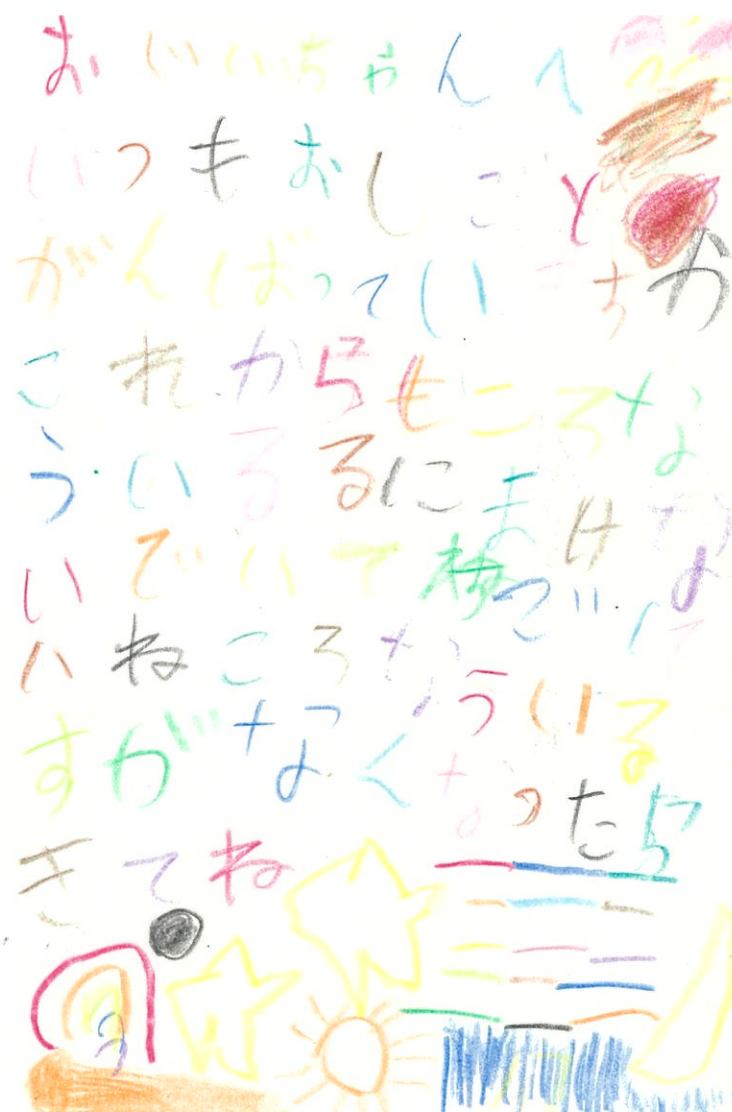 おじいちゃんへ
いつもおしごと
がんばっていこちか
これからもころな
ういるるにまけな
いでいてでいて
いねころなういる
すがなくなったら
きてね